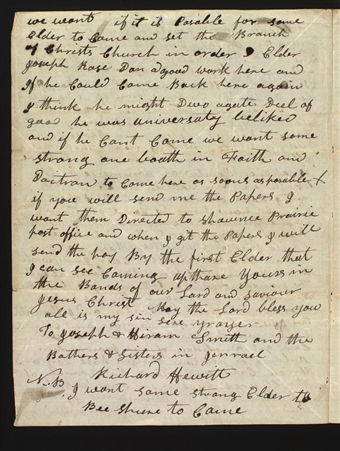 we want if it is Posable for some
Elder to Came and set the Branch
of Christs Church in order & Elder
Joseph Rose Don agood work here and
if he Could Come Back here again
I think he might Duo agate Deal of
good he was universaty beliked
and if he Cant Come we want some
strong one boath in Faith and
Doctran to Come here as soon as posable
if you will send me the Papers I
want them Directed to Shawnee Prairie
post office and when I git the Papers I will
send the pay By the first Elder that
I can see Coming up thare Yours in
the Bands of our Lord and saviour
Jesus Christ May the Lord bless you
all is my sin sere prayer
To Joseph & Hiram Smith and the
Bathers & Sisters in jenrael
Richard Hewitt
N.B. I want some strong Elder to
Bee Shure to Came